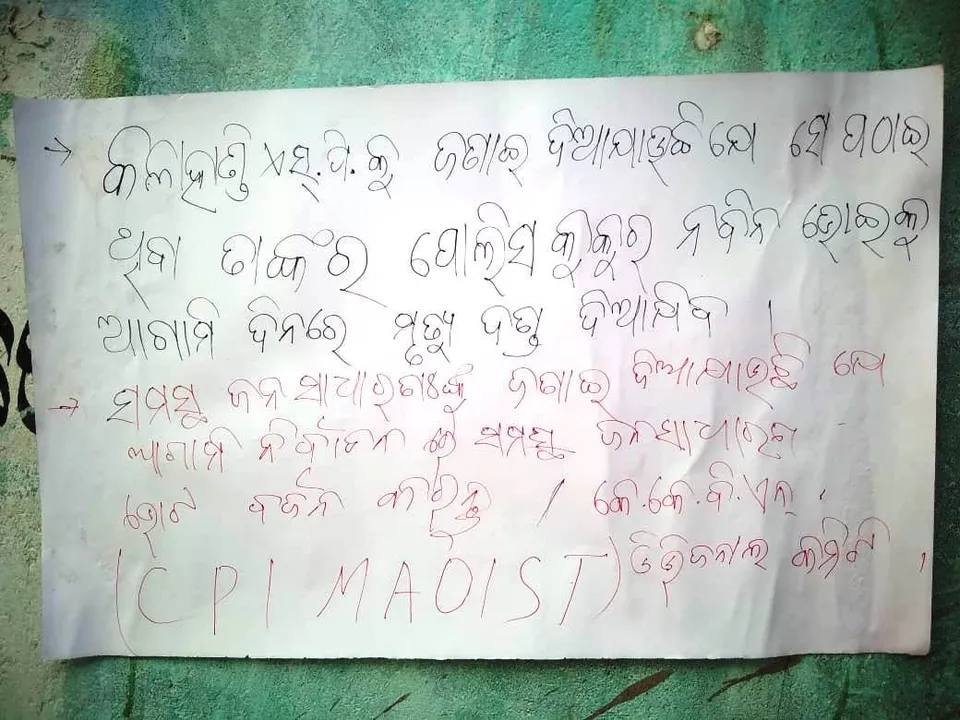 → କଳାହାଣ୍ଡି ଏସ୍.ପି.କୁ ଜଣାଇ ଦିଆଯାଉଛି ଯେ ସେ ପଠାଇ
ଥିବା ତାଙ୍କର ପୋଲିସ କୁକୁର ନବିନ ଭୋଇକୁ
ଆଗାମି ଦିନରେ ମୃତ୍ୟୁ ଦଣ୍ଡ ଦିଆଯିବ ।
→ ସମସ୍ତ ଜନସାଧାରଣଙ୍କୁ ଜଣାଇ ଦିଆଯାଉଛି ଯେ
ଆଗାମି ନିର୍ବାଚନ ରେ ସମସ୍ତ ଜନସାଧାରଣ
ଭୋଟ ବର୍ଜନ କରନ୍ତୁ । କେ.କେ.ବି.ଏନ୍.
(CPI MAOIST) ଡିଭିଜନାଲ କମିଟି ।